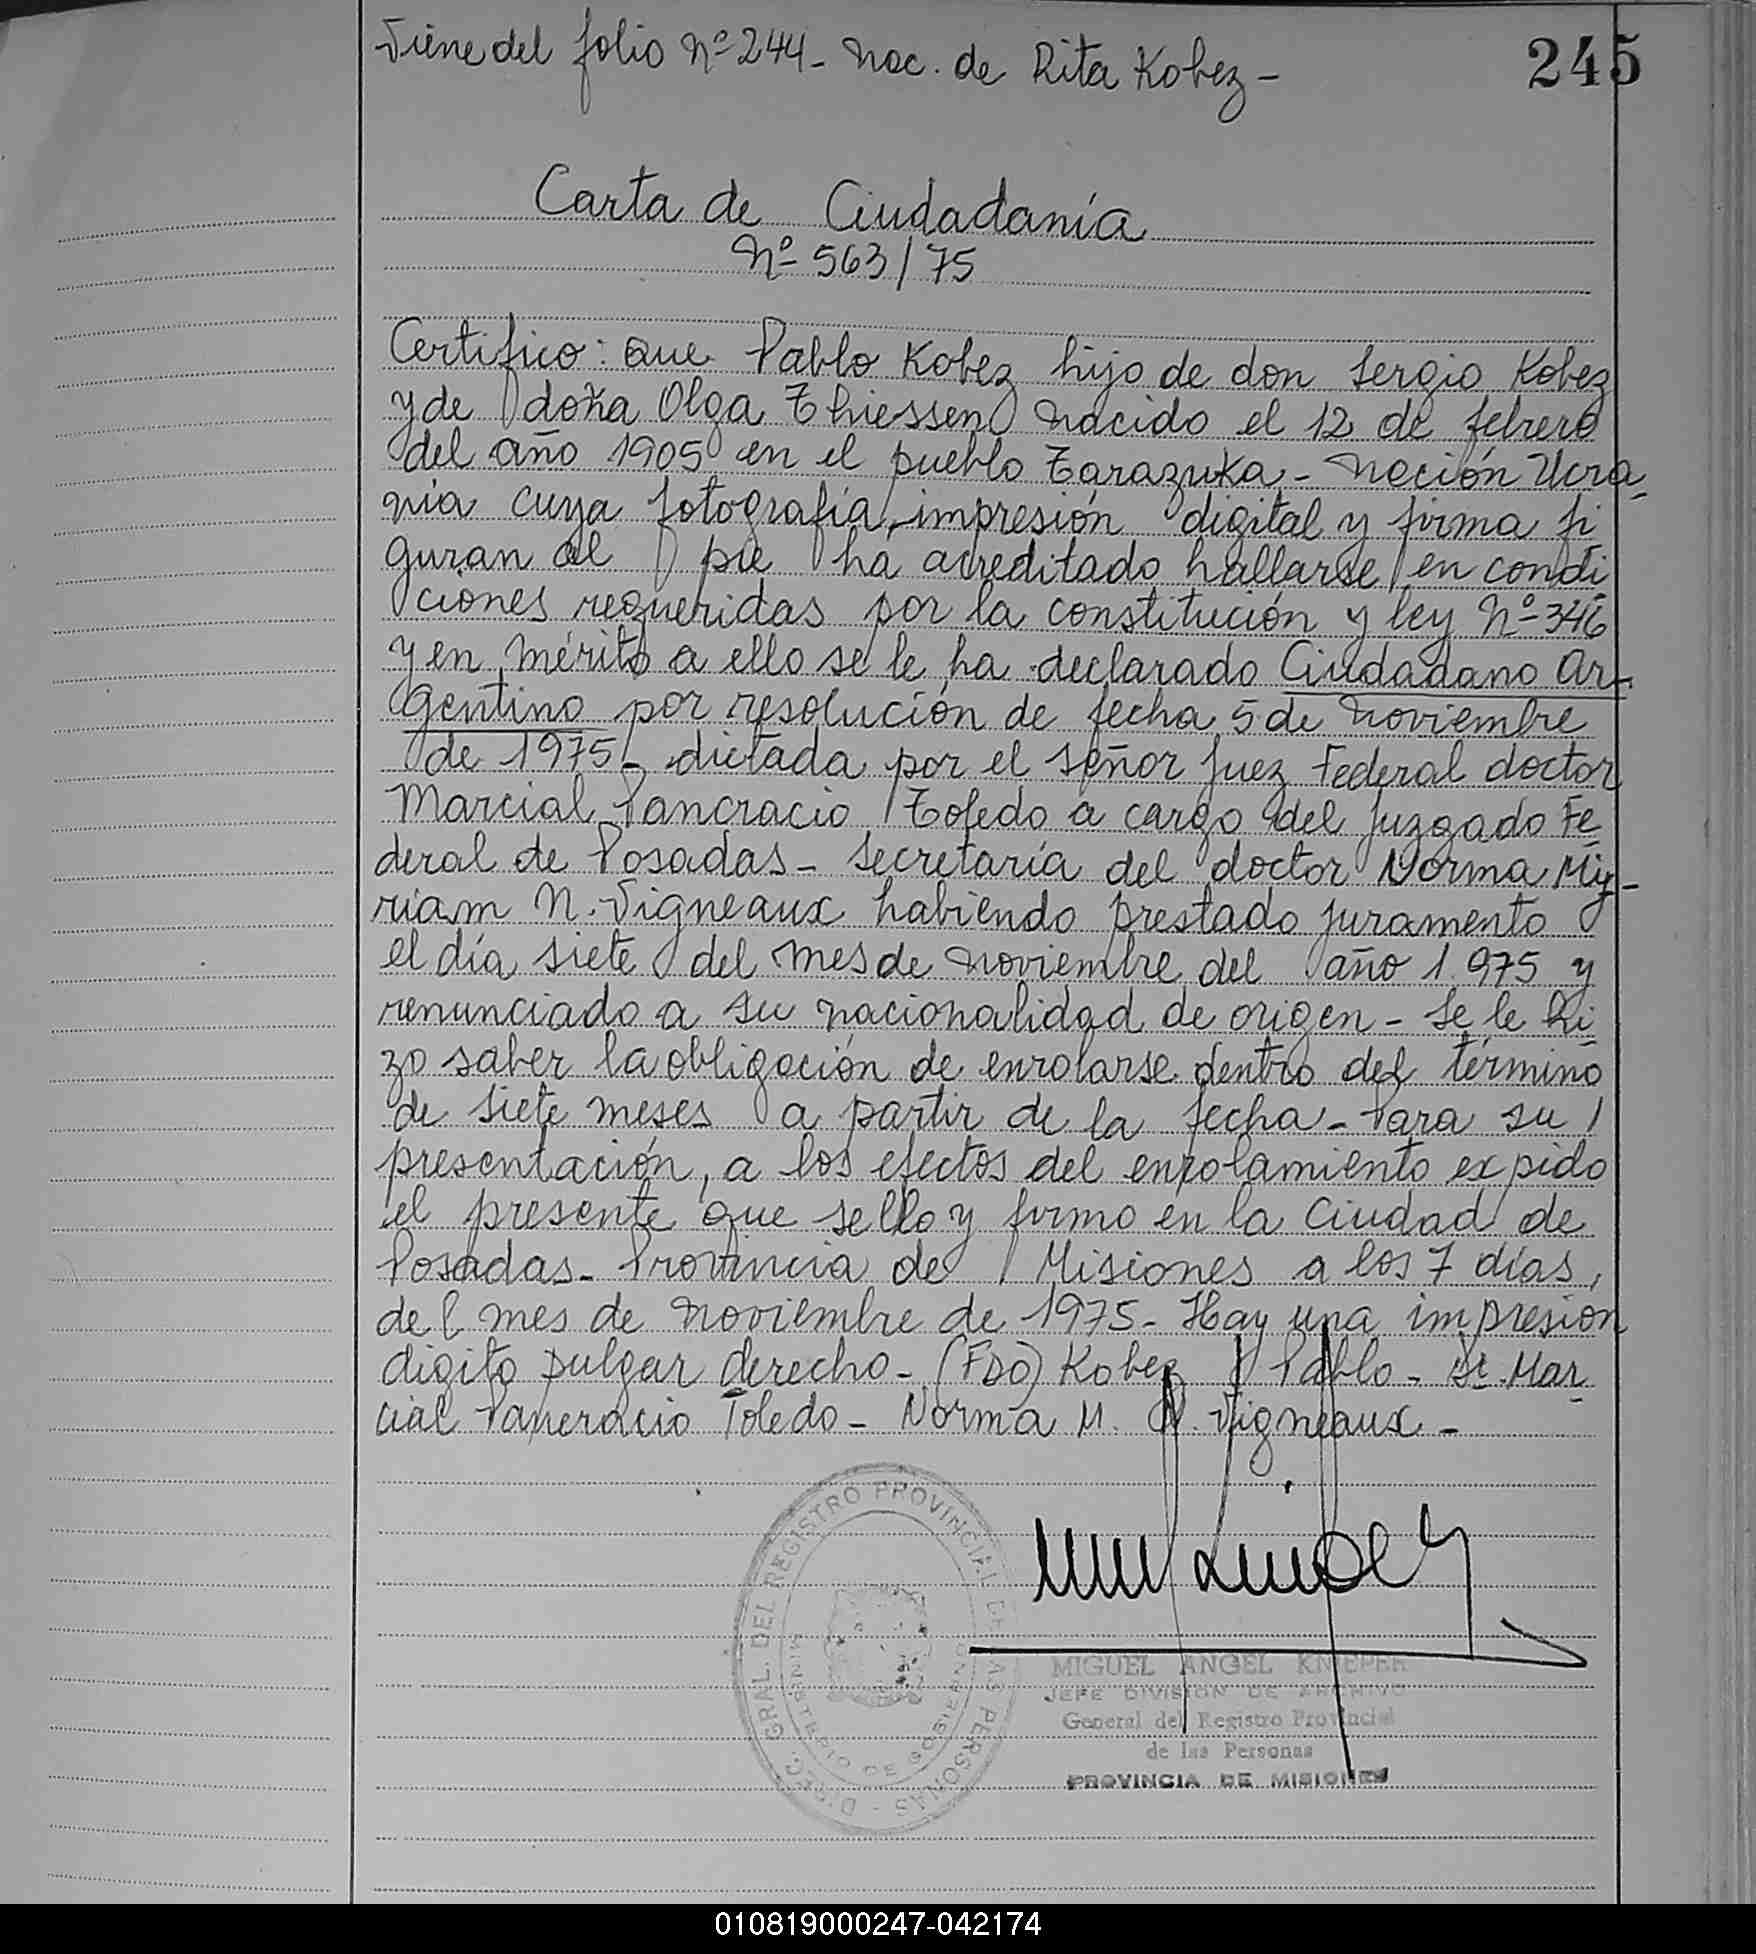 Viene del folio Nº 244 - Nac. de Rita Kobez -
245
Carta de Ciudadanía
Nº 563/75
Certifico: Que Pablo Kobez hijo de don Sergio Kobez
y de doña Olga Thiessen nacido el 12 de febrero
del año 1905 en el pueblo Tarazuka - Nación Ucra-
nia cuya fotografía, impresión digital y firma fi
guran al pie ha acreditado hallarse en condi
ciones requeridas por la constitución y ley Nº 346
y en mérito a ello se le ha declarado Ciudadano Ar-
gentino por resolución de fecha 5 de noviembre
de 1975 - dictada por el señor Juez Federal doctor
Marcial Pancracio Toledo a cargo del Juzgado Fe
deral de Posadas - Secretaría del doctor Norma My-
riam N. Vigneaux habiendo prestado juramento
el día siete del mes de noviembre del año 1.975 y
renunciado a su nacionalidad de origen - Se le hi
zo saber la obligación de enrolarse dentro del término
de siete meses a partir de la fecha - Para su /
presentación, a los efectos del enrolamiento expido
el presente que sello y firmo en la Ciudad de
Posadas - Provincia de Misiones a los 7 días,
del mes de noviembre de 1975 - Hay una impresión
digito pulgar derecho - (FDO) Kobez Pablo - Dr. Mar
cial Pancracio Toledo - Norma M. N. Vigneaux -
DIREC. GRAL. DEL REGISTRO PROVINCIAL DE LAS PERSONAS -
MINISTERIO DE GOBIERNO
MIGUEL ANGEL KNIEPER
JEFE DIVISION DE ARCHIVO
General del Registro Provincial
de las Personas
PROVINCIA DE MISIONES
010819000247-042174